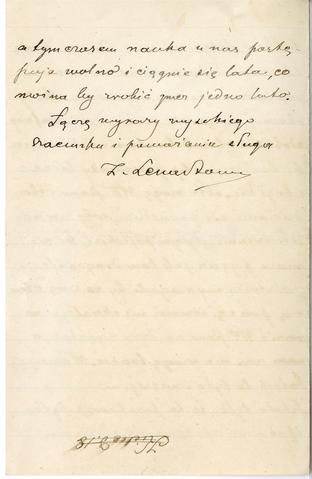 a tymczasem nauka u nas postę
puje wolno i ciągnie się lata, co
winna by zrobić przez jedno lato.
Łączę wyrazy wysokiego
szacunku i poważania sługa